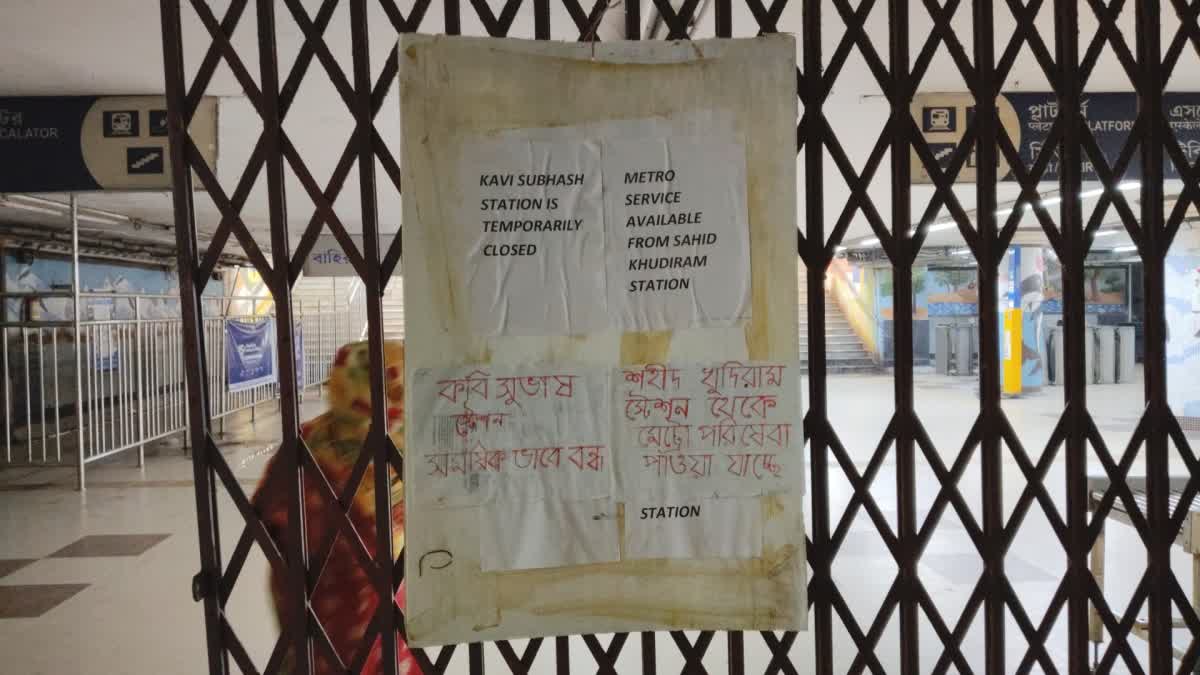 CALATOR
বাহির
KAVI SUBHASH
STATION IS
TEMPORARILY
CLOSED
METRO
SERVICE
AVAILABLE
FROM SAHID
KHUDIRAM
STATION
কবি সুভাষ
স্টেশন
সময়িক ভাবে বন্ধ
শহীদ খুদিরাম
স্টেশন থেকে
মেট্রো পরিষেবা
পাওয়া যাচ্ছে
STATION
প্লাটফর্ম